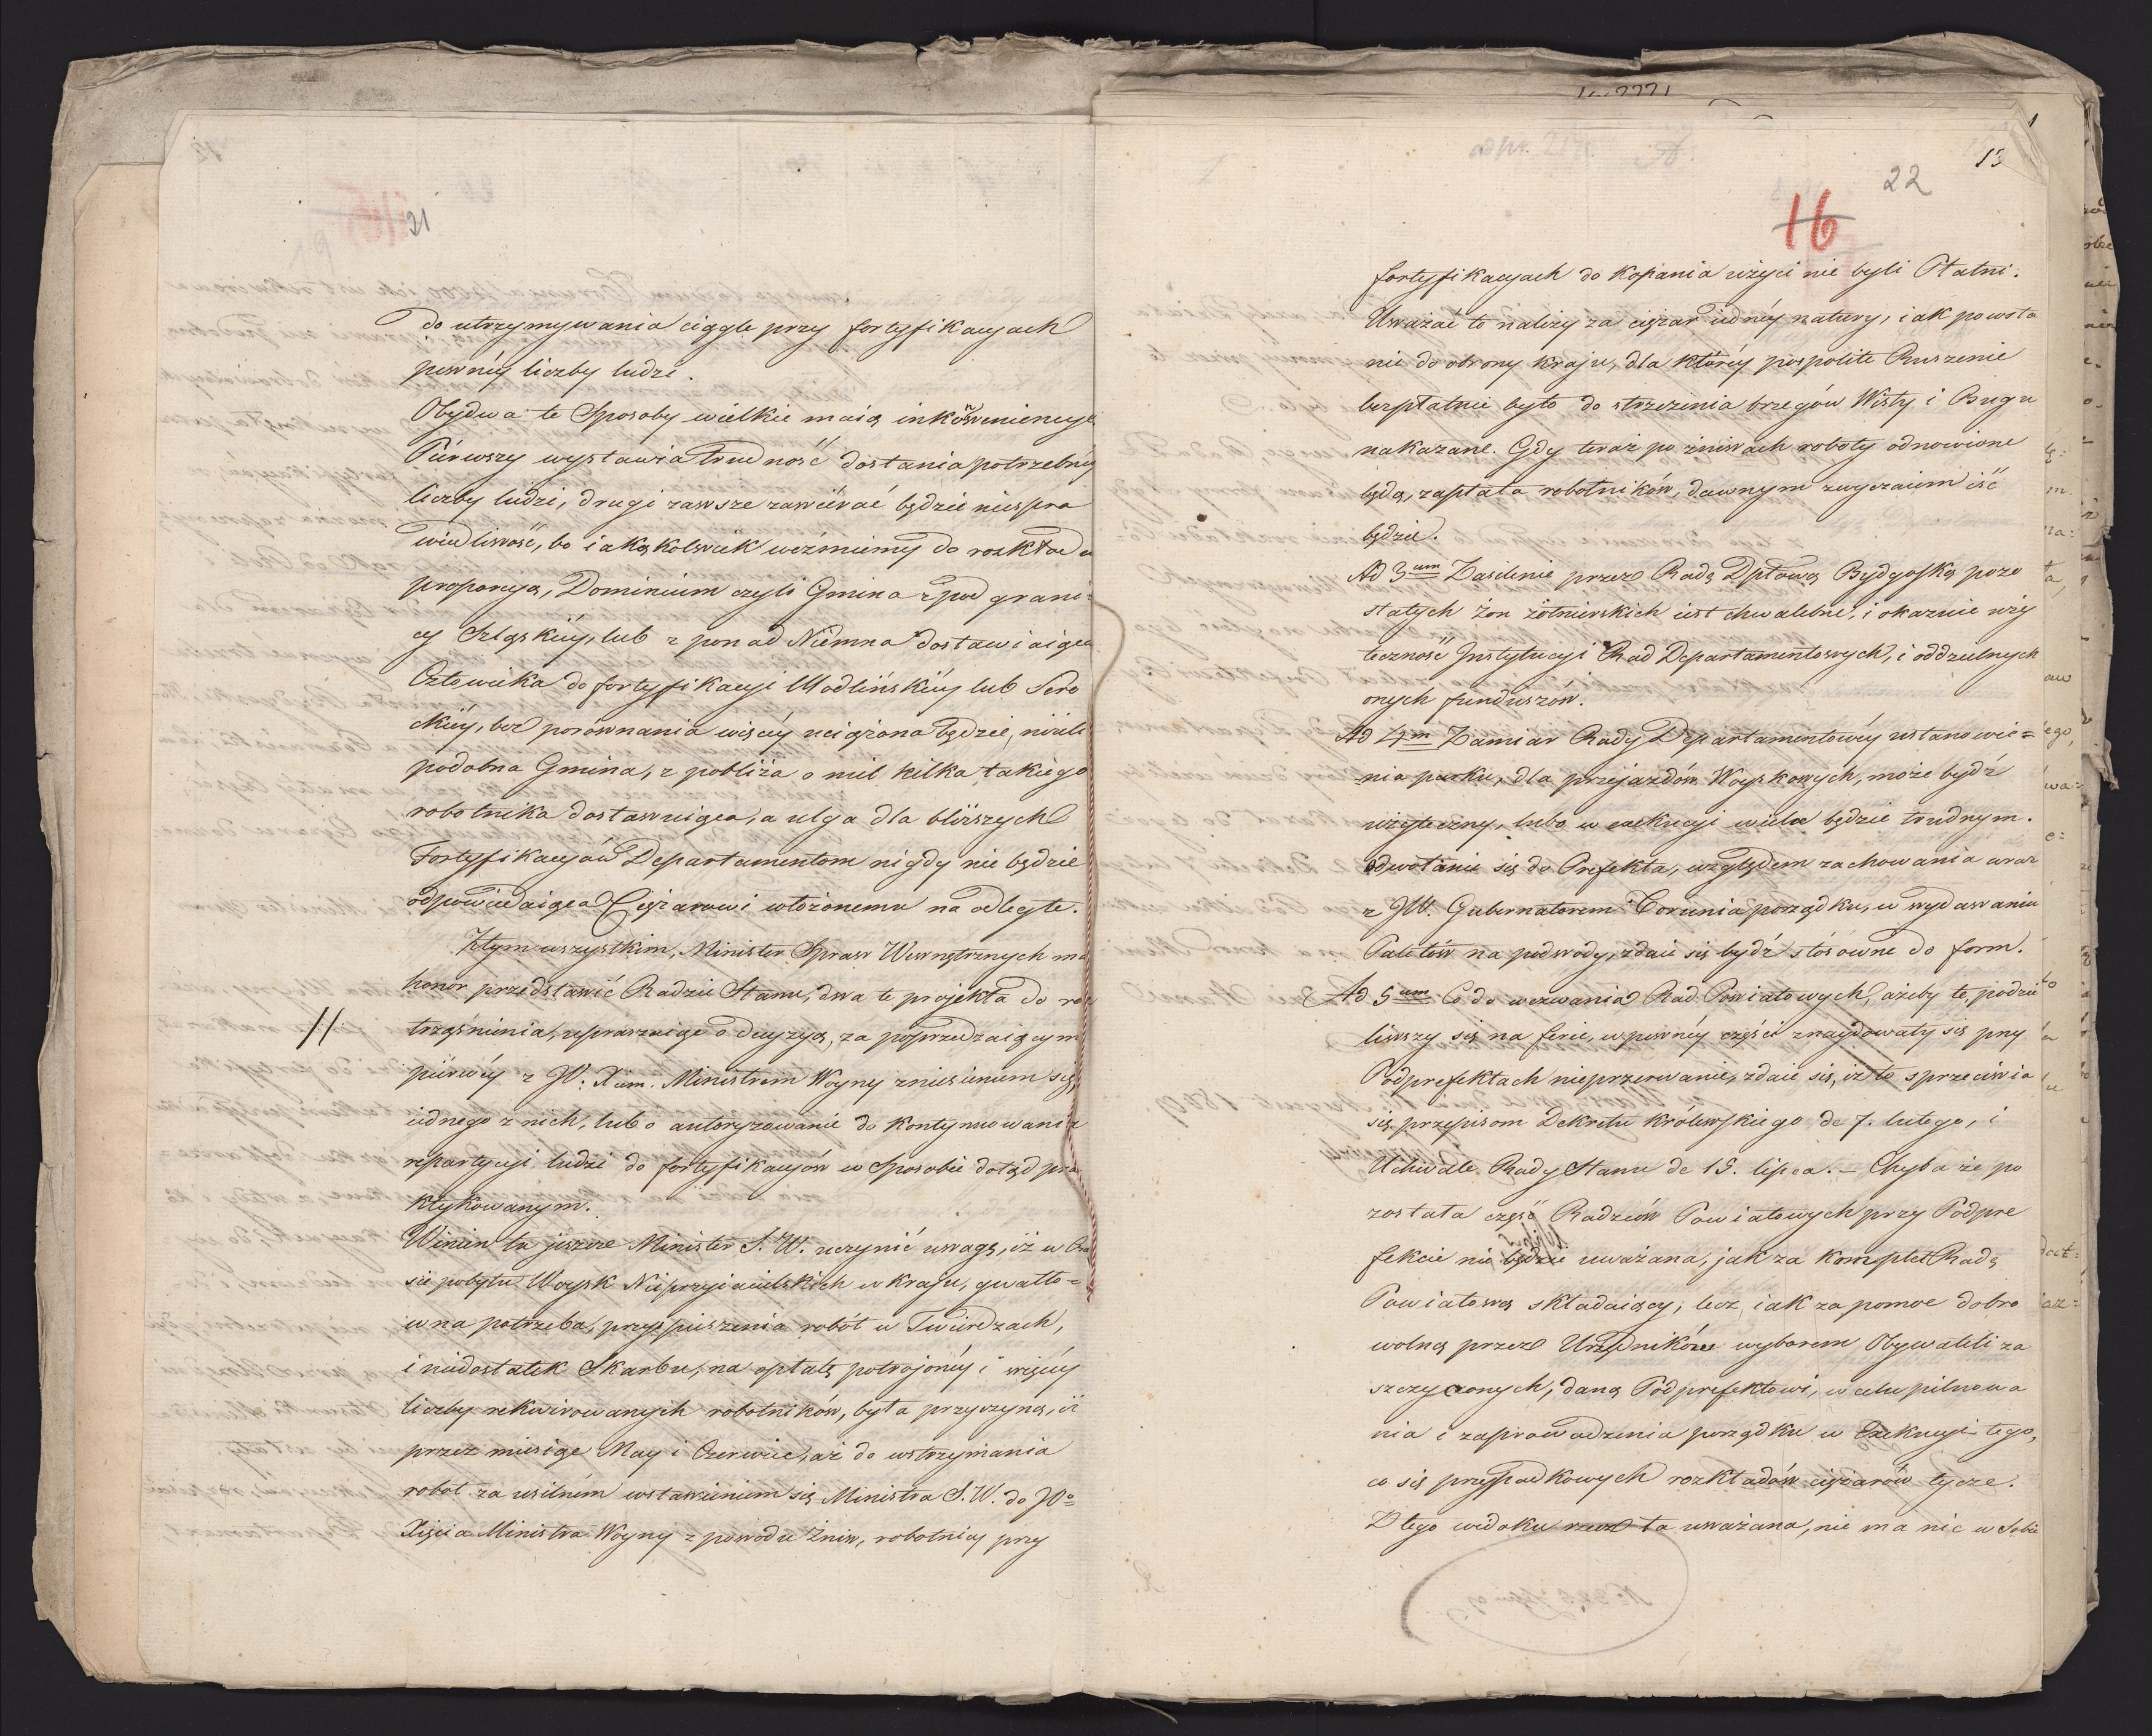 21
do utrzymywania ciągle przy fortyfikacyach
pewnéy liczby ludzi.
Obydwa te Sposoby wielkie maią inkonweniencye
Piérwszy wystawia trudność dostania potrzebnéy
liczby ludzi, drugi zawsze zawiérać będzie niespra
wiedliwość, bo iakąkolwiek weźmiemy do rozkładu
proporcyą, Dominium czyli Gmina z pod grani-
cy Szląskiéy, lub z ponad Niemna dostawiaiąca
Człowieka do fortyfikacyi Modlińskiéy lub Sero
ckiéy, bez porównania więcéy uciążona będzie, niżeli
podobna Gmina, z pobliża o mil kilka, takiego
robotnika dostawuiąca, a ulga dla bliższych
Fortyfikacyów Departamentom nigdy nie będzie
odpowiedaiąca Ciężarowi włożonemu na odległe.
Ztym wszystkim, Minister Spraw Wewnętrznych ma
honor przedstawić Radzie Stanu, dwa te projekta do roz
// trząśnienia, upraszaiąc o decyzyą, za poprzedzaiącym
piérwéy z JO. Xciem. Ministrem Woyny zniesieniem się
iednego z nich, lub o autoryzowanie do kontynuowania
repartycyi ludzi do fortyfikacyów w Sposobie dotąd pra
ktykowanym.
Winien tu jeszcze Minister S. W. uczynić uwagę, iż w Cza
sie pobytu Woysk Nieprzyiacielskich w kraju, gwałto=
wna potrzeba, przyśpieszenia robót w Twierdzach,
i niedostatek Skarbu, na opłatę potrojonéy i więcéy
liczby rekwirowanych robotników, była przyczyną, iż
przez miesiące May i Czerwiec, aż do wstrzymania
robot za usilném wstawieniem się Ministra S. W. do JO=
Xięcia Ministra Woyny z powodu żniw, robotnicy przy
13
22
16
fortyfikacyach do kopania użyci nie byli Płatni.
Uważać to należy za ciężar iednéy natury, iak powsta
nie do obrony kraju, dla któréy pospolite Ruszenie
bezpłatnie było do strzeżenia brzegów Wisły i Bugu
nakazane. Gdy teraz po żniwach roboty odnowione
będą, zapłata robotników, dawnym zwyczaiem iść
będzie.
Ad 3um Zasilenie przez Radę Dptową Bydgoską pozo
stałych żon żołnierskich iest chwalebne, i okazuie uży
teczność Instytucyi Rad Departamentowych, i oddzielnych
onych funduszów.
Ad 4m Zamiar Rady Departamentowéy ustanowie=
nia parku, dla przejazdów Woyskowych, może bydź
użyteczny, lubo w exekucyi wielce będzie trudnym.
odwołanie się do Prefekta, względem zachowania wraz
z JW. Gubernatorem Torunia porządku, w wydawaniu
Paletów na podwody, zdaie się bydź stósowne do form.
Ad 5um Co do wezwania Rad Powiatowych, ażeby te, podzie
liwszy się na ferie, w pewnéy części znaydowały się przy
Podprefektach nieprzerwanie, zdaie się, iż to sprzeciwia
się przepisom Dekretu Królewskiego de 7. lutego, i
Uchwale Rady Stanu de 15. lipca. – Chyba że po
zostala część Radzców Powiatowych przy Podpre
fekcie nie będzie uważana, jak za komplet Radę
Powiatową składaiący, lecz iak za pomoc dobro
wolną przez Urzędników wyborem Obywateli za
szczyconych, daną Podprefektowi, w celu pilnowa
nia i zaprowadzenia porządku w Exekucyi tego,
co się przypadkowych rozkładów ciężarów tycze.
Z tego widoku rzecz ta uważana, nie ma nic w Sobie